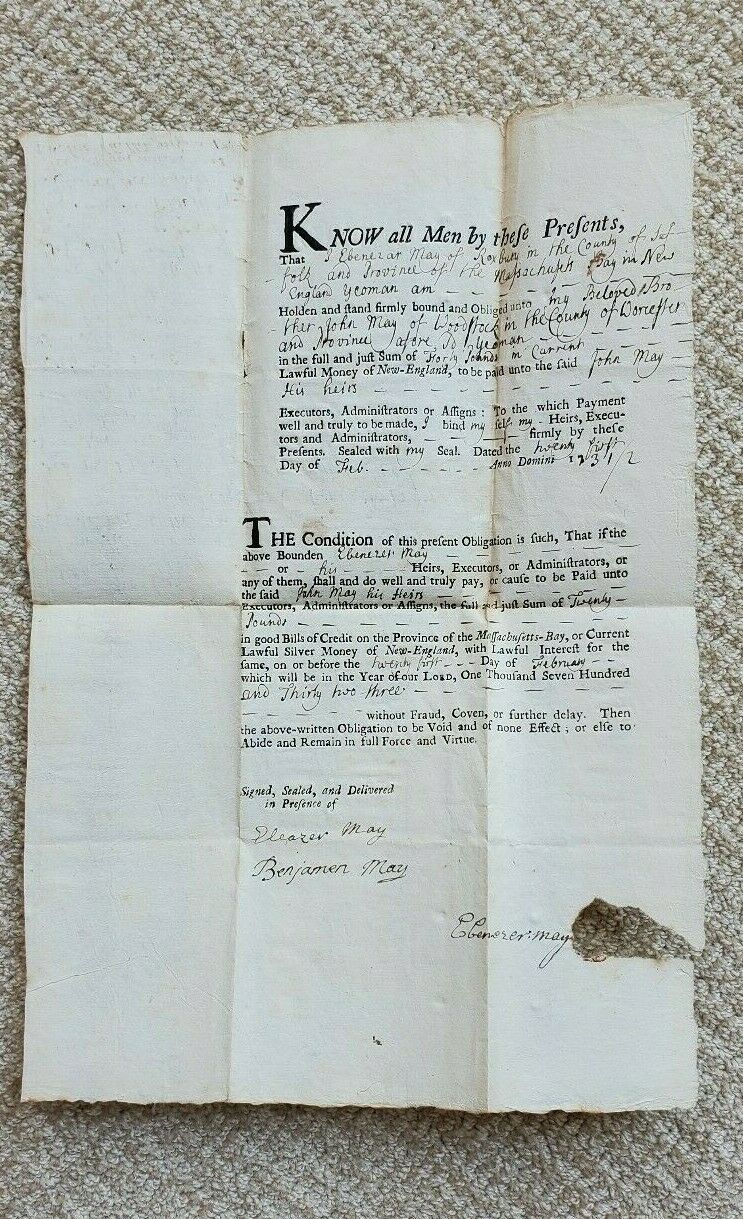 KNOW all Men by these Presents,
That I Ebenezar May of Roxbury in the County of Suf
folk and Province of the Massachusets Bay in New
England Yeoman am
Holden and stand firmly bound and Obliged unto my Beloved Bro
ther John May of Woodstock in the County of Worcester
and Province afore sd Yeoman
in the full and just Sum of Forty Pounds in Current
Lawful Money of New-England, to be paid unto the said John May
His heirs
Executors, Administrators or Assigns: To the which Payment
well and truly to be made, I bind my self my Heirs, Execu-
tors and Administrators, firmly by these
Presents. Sealed with my Seal. Dated the twenty first
Day of Feb. Anno Domini 1731/2
THE Condition of this present Obligation is such, That if the
above Bounden Ebenezer May
or his Heirs, Executors, or Administrators, or
any of them, shall and do well and truly pay, or cause to be Paid unto
the said John May his Heirs
Executors, Administrators or Assigns, the full and just Sum of Twenty
Pounds
in good Bills of Credit on the Province of the Massachusetts-Bay, or Current
Lawful Silver Money of New-England, with Lawful Interest for the
same, on or before the twenty first Day of February
which will be in the Year of our LORD, One Thousand Seven Hundred
and Thirty two three
without Fraud, Coven, or further delay. Then
the above-written Obligation to be Void and of none Effect; or else to
Abide and Remain in full Force and Virtue.
Signed, Sealed, and Delivered
in Presence of
Eleazer May
Benjamen May
Ebenezer: may